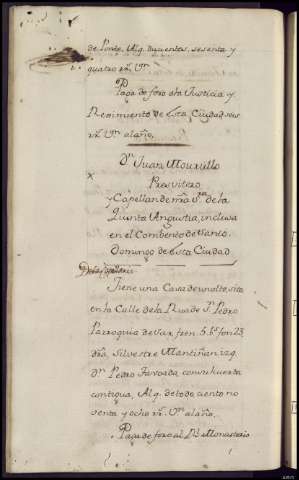 de Ponte, Alq. duçentos, sesenta y
quatro rs. Vn.
Paga de foro ála Justicia y
Reximiento de esta Ciudad seis
rs. Vn. al año.
Dn. Juan Mourullo
x
Presvitero
y Capellan de nra. Sra. de la
Quinta Angustia, inclusa
en el Combento de Santo
Domingo de esta Ciudad
Tiene una Casa de un alto, sita
en la Calle de la Rua de Sn. Pedro
Parroquia de Sar, fren. 5. bs. fon. 23
dra. Silvestre Mantiñan, yzq.
Dn. Pedro Tavoada, con su huerta
contigua, Alq. de todo ciento no
venta y ocho rs. Vn. al año.
Paga de foro al Rl. Monasterio